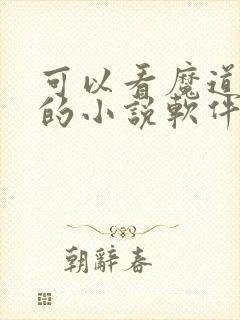 可以看魔道
的小說軟件
朝辭春